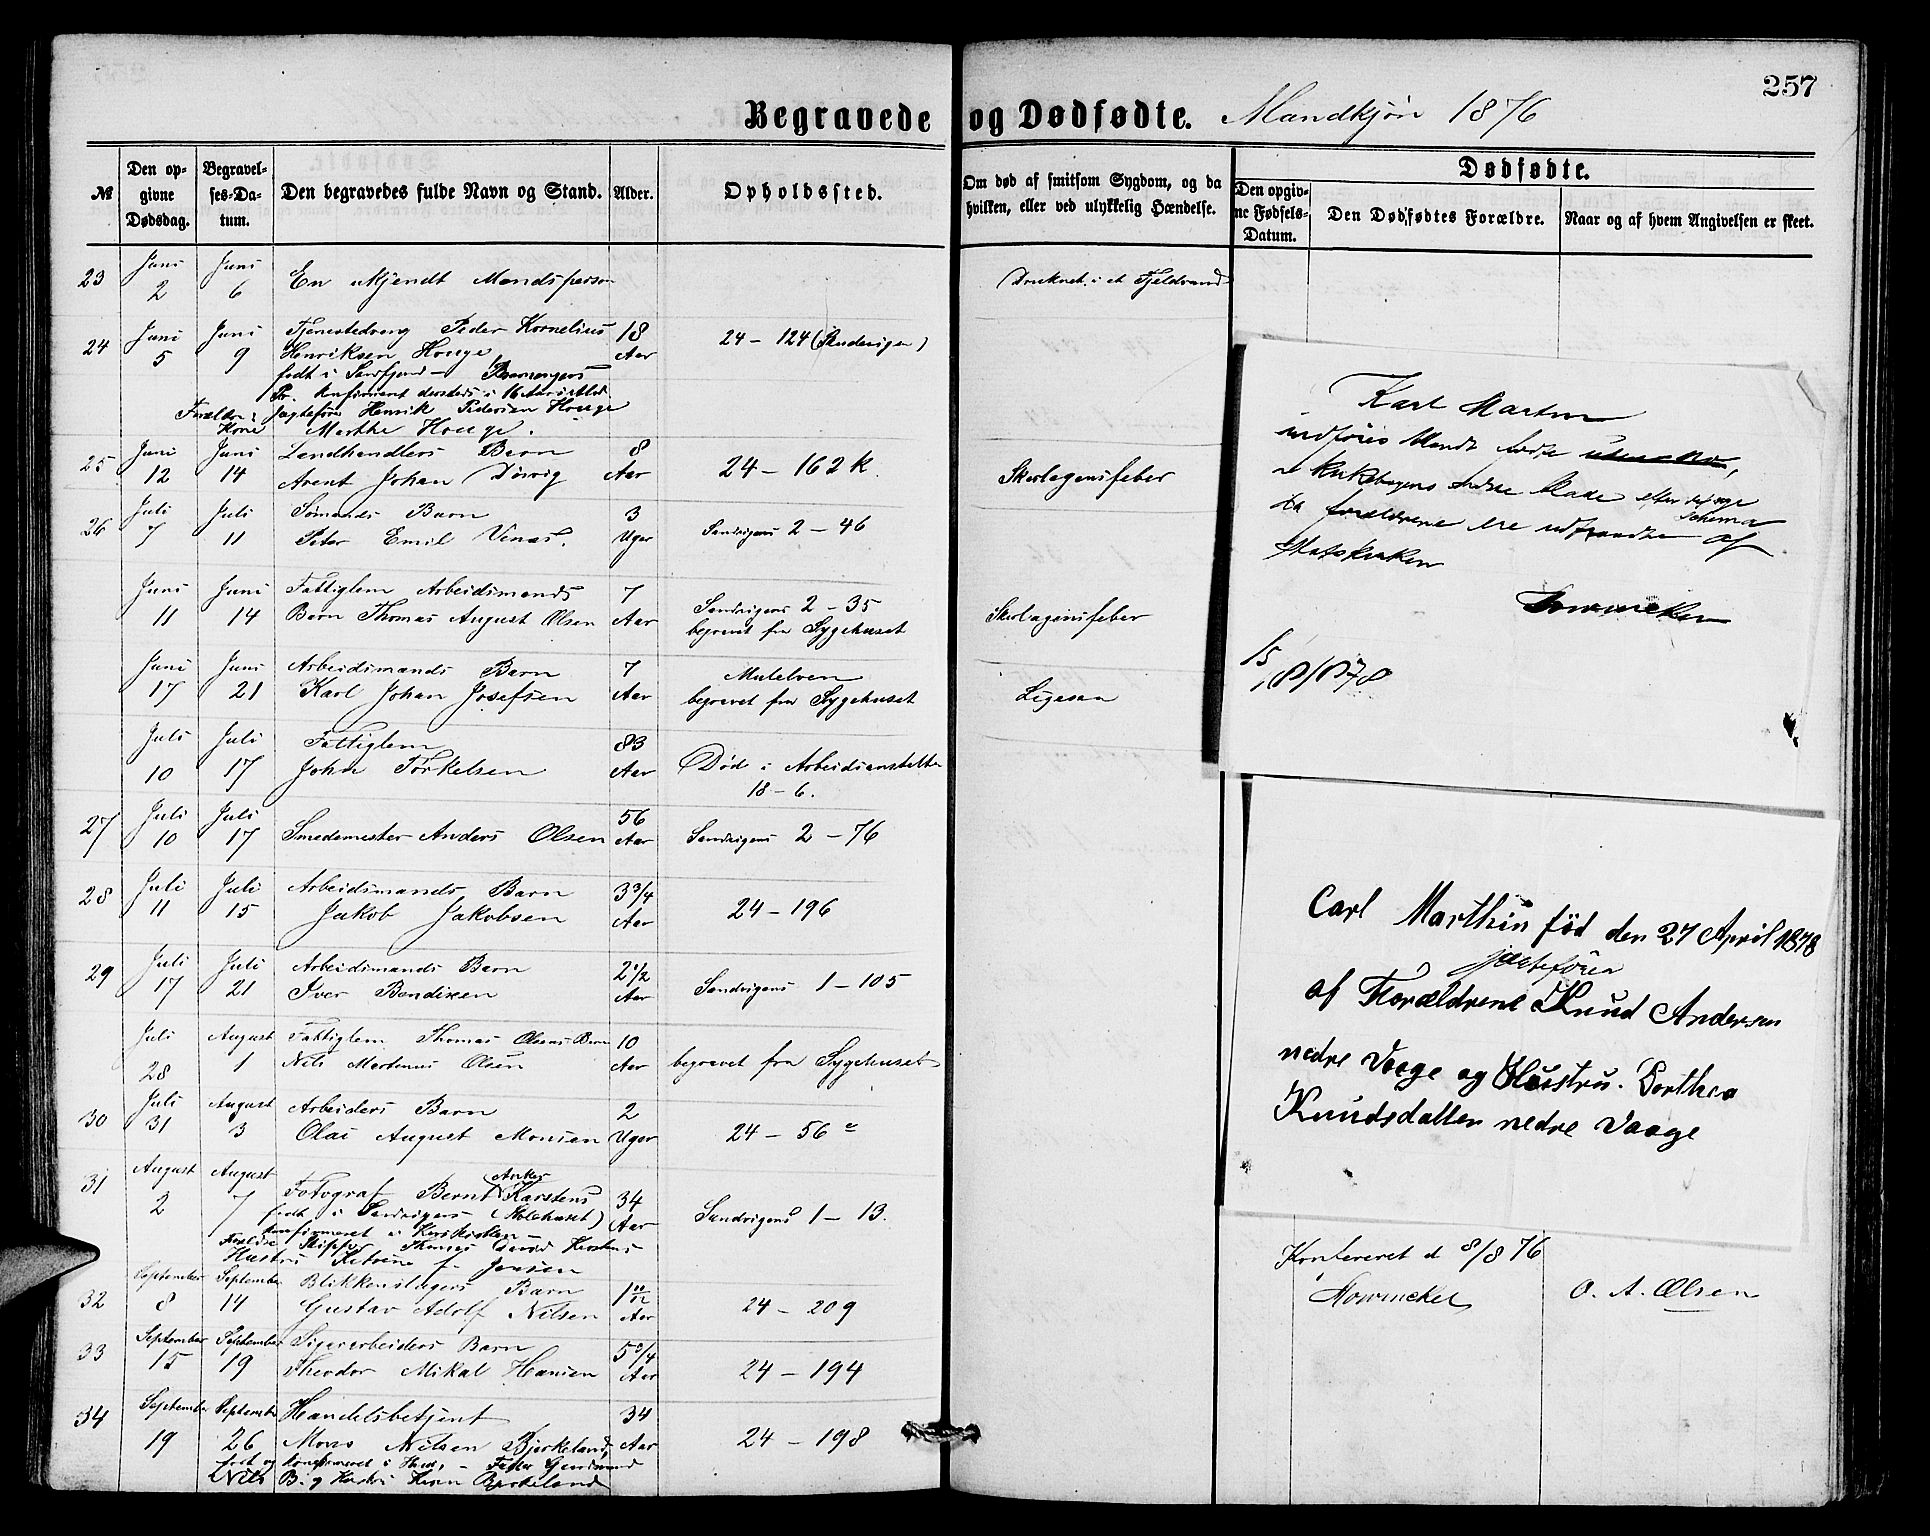 257
Begravede og Dødfødte. Mandkjøn 1876
№
Den opgivne Dødsdag.
Begravelses-Datum.
Den begravedes fulde Navn og Stand.
Alder.
Opholdssted.
Om død af smitsom Sygdom, og da hvilken, eller ved ulykkelig Hændelse.
Dødfødte.
Den opgivne Fødsels-Datum.
Den Dødfødtes Forældre.
Naar og af hvem Angivelsen er skeet.
23 Juni 2 Juni 6 En ukjendt Mandsperson Druknet i et Fjeldvand
24 Juni 5 Juni 9 Tjenestedreng Peder Kornelius 18 Aar 24 – 124 (Sandvigen)
Henriksen Houge
født i Søndfjord –
Pr. konfirmeret dersteds i 16 Aars Ald.
Forældre: Jagtefører Henrik Pedersen Houge
Kone Marthe Houge.
25 Juni 12 Juni 14 Landhandlers Barn 8 Aar 24 – 162 K. Skarlagensfeber
Arent Johan
26 Juli 7 Juli 11 Sømands Barn 3 Uger Sandvigens 2 – 46
Peter Emil Venas.
Juni 11 Juni 14 Fattiglem Arbeidsmands 7 Aar Sandvigens 2 – 35 Skarlagensfeber
Barn Thomas August Olsen begravet fra Sygehuset
Juni 17 Juni 21 Arbeidsmands Barn 7 Aar Mulelven
Karl Johan Josefsen begravet fra Sygehuset Ligesaa
Juli 10 Juli 17 Fattiglem 83 Aar Død i Arbeidsanstalten
John Torkelsen 18 – 6.
27 Juli 10 Juli 17 Smedemester Anders Olsen 56 Aar Sandvigens 2 – 76
28 Juli 11 Juli 15 Arbeidsmands Barn 3 3/4 Aar 24 – 196
Jakob Jakobsen
29 Juli 17 Juli 21 Arbeidsmands Barn 2 1/2 Aar Sandvigens 1 – 105
Iver Bendixen
Juli 28 August 1 Fattiglem Thomas Olsens Barn 10 Aar begravet fra Sygehuset
Nils Martinus Olsen
30 Juli 31 August 3 Arbeiders Barn 2 Uger 24 – 56
Olai August Monsen
31 August 2 August 7 Fotograf Bernt Anker Karstens 34 Aar Sandvigens 1 – 13.
født i Sandvigens
konfirmeret i Korskirken –
Forældre Skipper Thomas
Hustru Katrine f. Jansen
32 September 8 September 14 Blikkenslagers Barn 1 10/12 Aar 24 – 209
Gustav Adolf Nilsen
33 September 15 September 19 Sigararbeiders Barn 5 3/4 Aar 24 – 194
Theodor Mikal Hansen
34 September 19 September 26 Handelsbetjent 34 Aar 24 – 198
Mons Nilsen Bjørkeland,
født og konfirmeret i – Fader Gaardmand
Nils B. og Hustru Bjørkeland
Karl Martin
indføres blandt fødte
Kirkebogens efter
Schema
da forældrene ere udtraadte af
Statskirken
Konow
15/8 1878
Carl Marthin fød den 27 April 1878
jægtefører
af Floræeldrene Knud Andersen
nedre Vaage og Hustru. Dorthea
Knudsdatter nedre Vaage
Konfereret d 8/8 76
O. A. Olsen